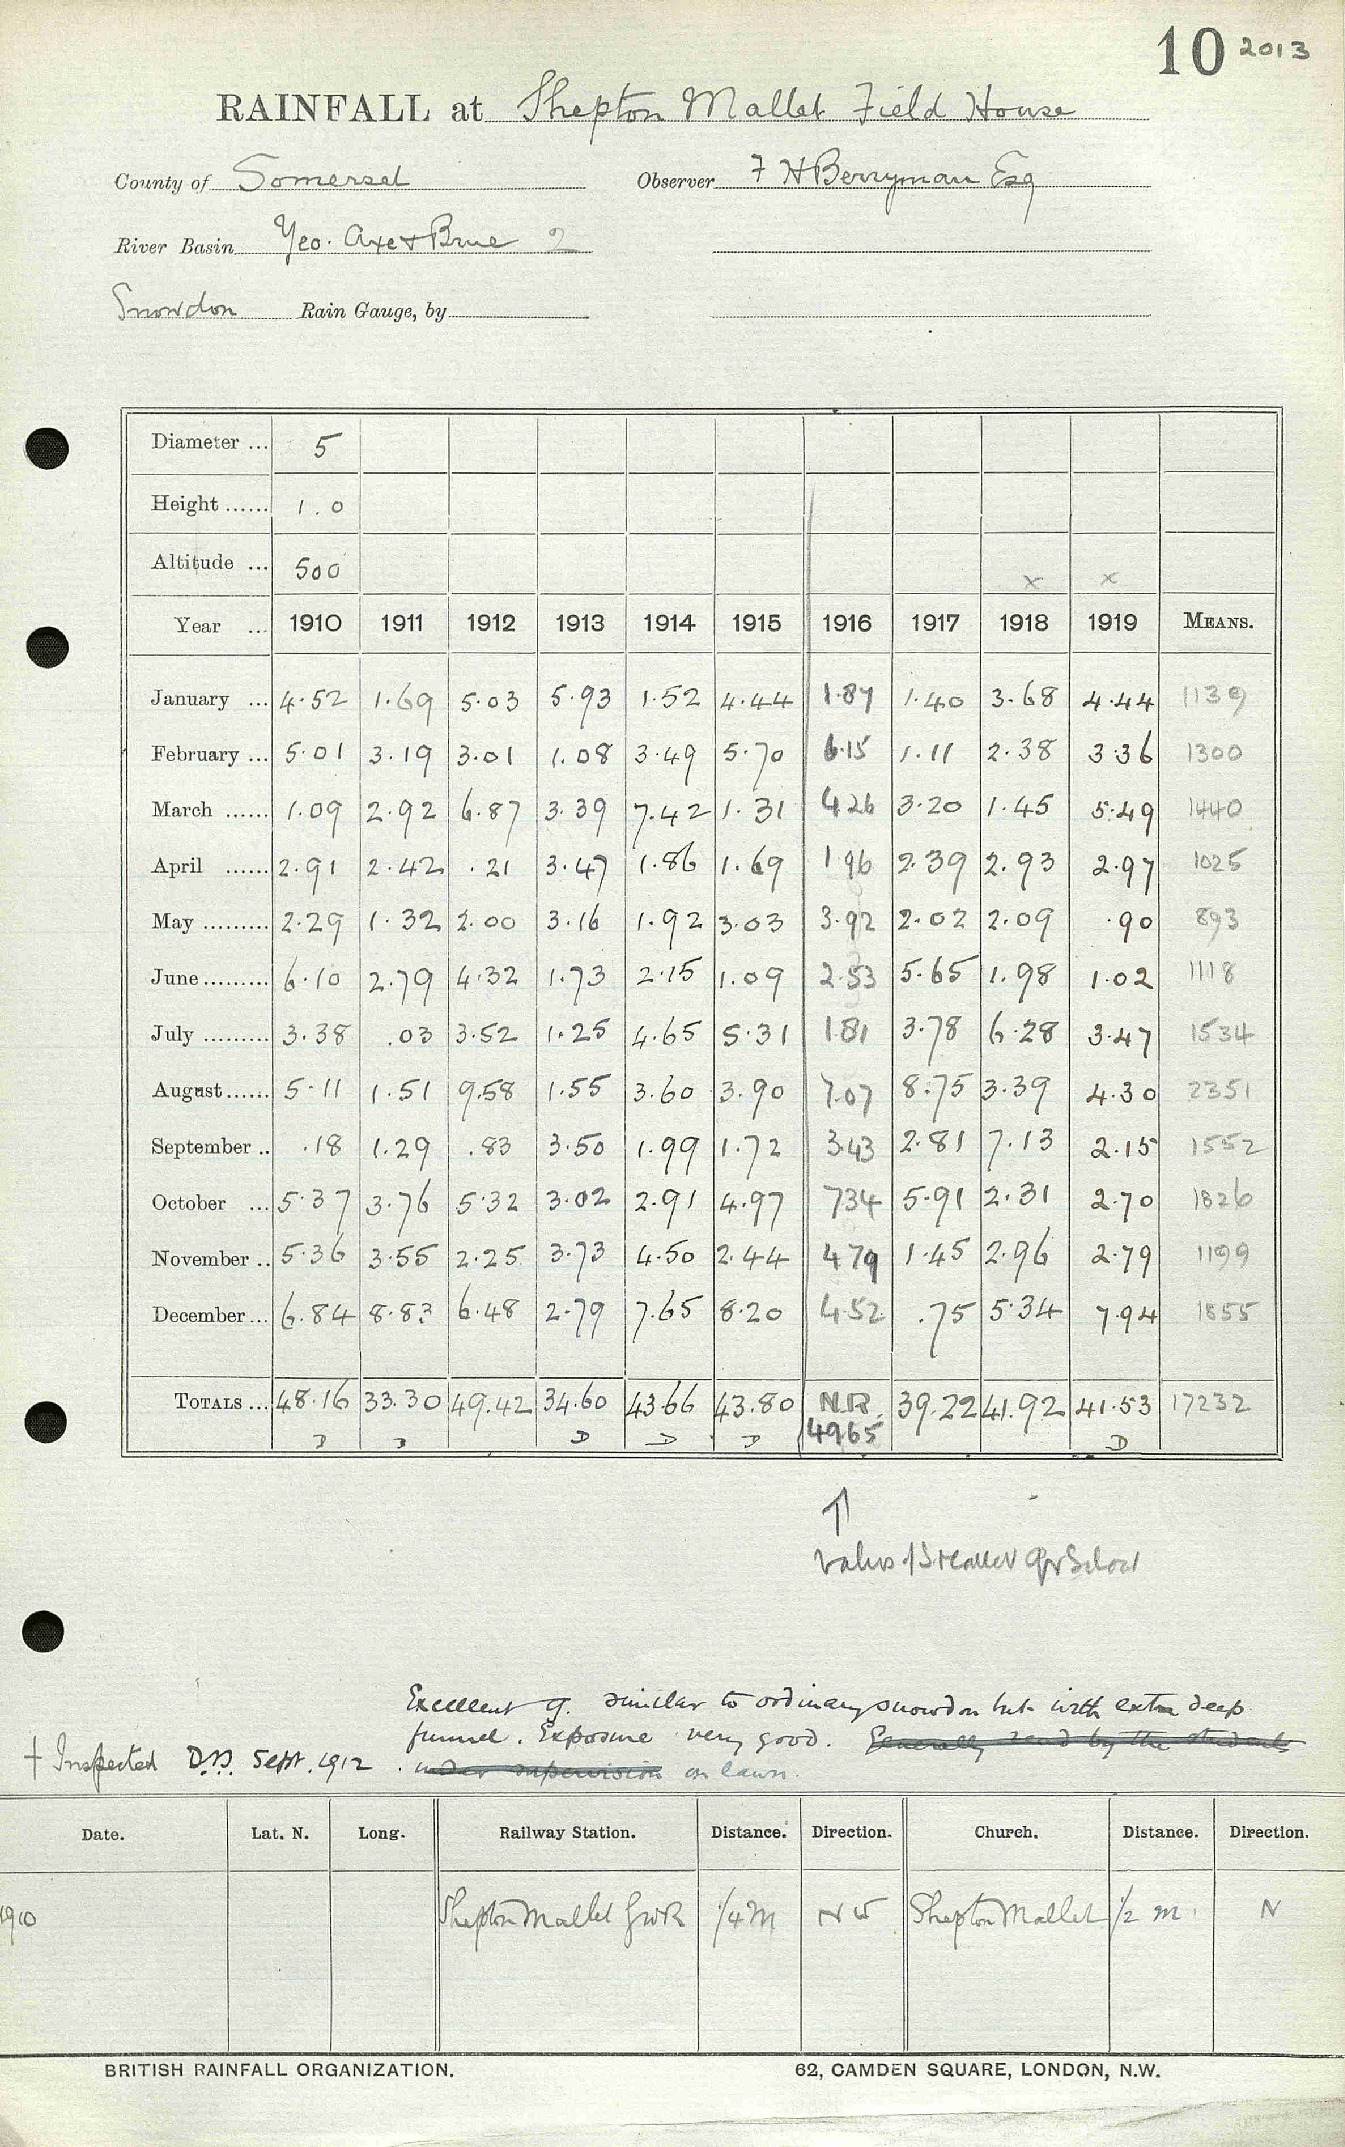 10 2013
RAINFALL at Shepton Mallet Field House
County of Somerset Observer F H Berryman Esq
River Basin Yeo. Axe & Brue 2
Snowdon Rain Gauge, by
Diameter ... 5
Height ...... 1.0
Altitude ... 500 x x
Year ... 1910 1911 1912 1913 1914 1915 1916 1917 1918 1919 MEANS.
January ... 4.52 1.69 5.03 5.93 1.52 4.44 1.87 1.40 3.68 4.44 1139
February ... 5.01 3.19 3.01 1.08 3.49 5.70 6.15 1.11 2.38 3.36 1300
March ...... 1.09 2.92 6.87 3.39 7.42 1.31 426 3.20 1.45 5.49 1440
April ...... 2.91 2.42 .21 3.47 1.86 1.69 1 96 2.39 2.93 2.97 1025
May ......... 2.29 1.32 2.00 3.16 1.92 3.03 3.92 2.02 2.09 .90 893
June ......... 6.10 2.79 4.32 1.73 2.15 1.09 2.53 5.65 1.98 1.02 1118
July ......... 3.38 .03 3.52 1.25 4.65 5.31 1.81 3.78 6.28 3.47 1534
August ...... 5.11 1.51 9.58 1.55 3.60 3.90 7.07 8.75 3.39 4.30 2351
September .. .18 1.29 .83 3.50 1.99 1.72 3.43 2.81 7.13 2.15 1552
October ... 5.37 3.76 5.32 3.02 2.91 4.97 734 5.91 2.31 2.70 1826
November .. 5.36 3.55 2.25 3.73 4.50 2.44 479 1.45 2.96 2.79 1199
December ... 6.84 8.83 6.48 2.79 7.65 8.20 4.52 .75 5.34 7.94 1855
TOTALS ... 48.16 33.30 49.42 34.60 43.66 43.80 N.R. 39.22 41.92 41.53 17232
D D D D D 4965 D
↑
Values of S Mallet
Excellent g. similar to ordinary snowdon but with extra deep
funnel. Exposure very good. Generally read by the students
† Inspected D.D. Sept. 1912. under supervision on lawn.
Date. Lat. N. Long. Railway Station. Distance. Direction. Church. Distance. Direction.
1910 Shepton Mallet GWR 1/4 M NW Shepton Mallet 1/2 m. N
BRITISH RAINFALL ORGANIZATION. 62, CAMDEN SQUARE, LONDON, N.W.